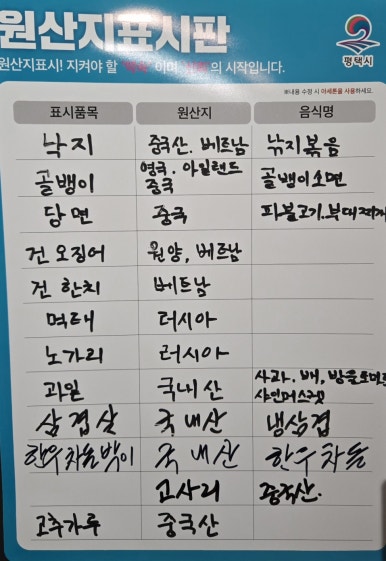 원산지표시판
원산지표시! 지켜야 할 이며 의 시작입니다.
평택시
※내용 수정 시 아세톤을 사용하세요.
표시품목 원산지 음식명
낙지 중국산. 베트남 낚지볶음
골뱅이 영국. 아일랜드 중국 골뱅이소면
당면 중국 파불고기.부대찌개
건 오징어 원양, 베트남
건 한치 베트남
먹태 러시아
노가리 러시아
과일 국내산 사과. 배, 방울토마토 샤인머스켓
삼겹살 국내산 냉삼겹
한우차돌박이 국내산 한우차돌
고사리 중국산.
고추가루 중국산